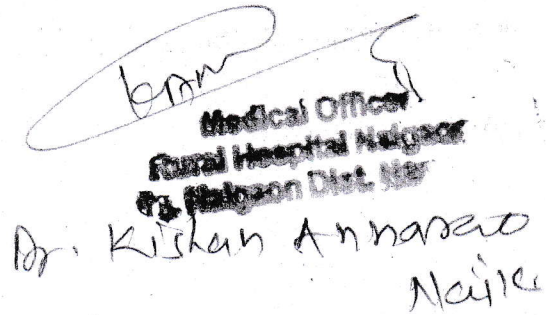 Medical Officer
Rural Hospital Naigaon
Tq. Naigaon Dist. Nan
Dr. Kishan Annarao
Naik.